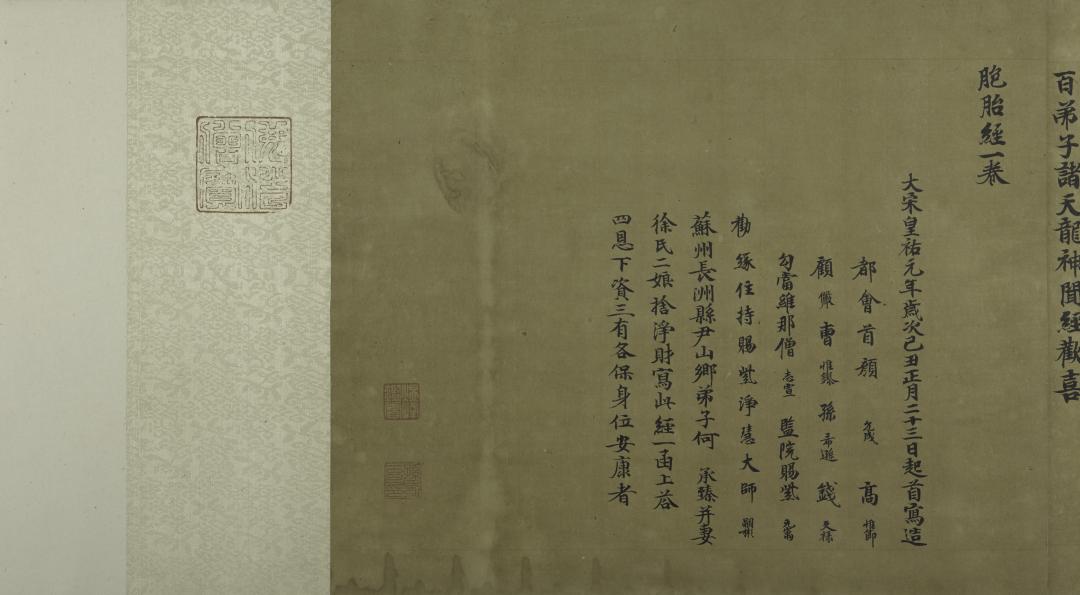 百弟子諸天龍神聞經歡喜
胞胎經一卷
大宋皇祐元年歲次己丑正月二十三日起首寫造
都會首顏 高 惟節
顧 曹 惟 孫 希遜 錢 天祿
勾當維那僧 志宣 監院賜紫
勸緣住持賜紫淨慧大師
蘇州長洲縣尹山鄉弟子何 承臻并妻
徐氏二娘捨淨財寫此經一函上荅
四恩下資三有各保身位安康者